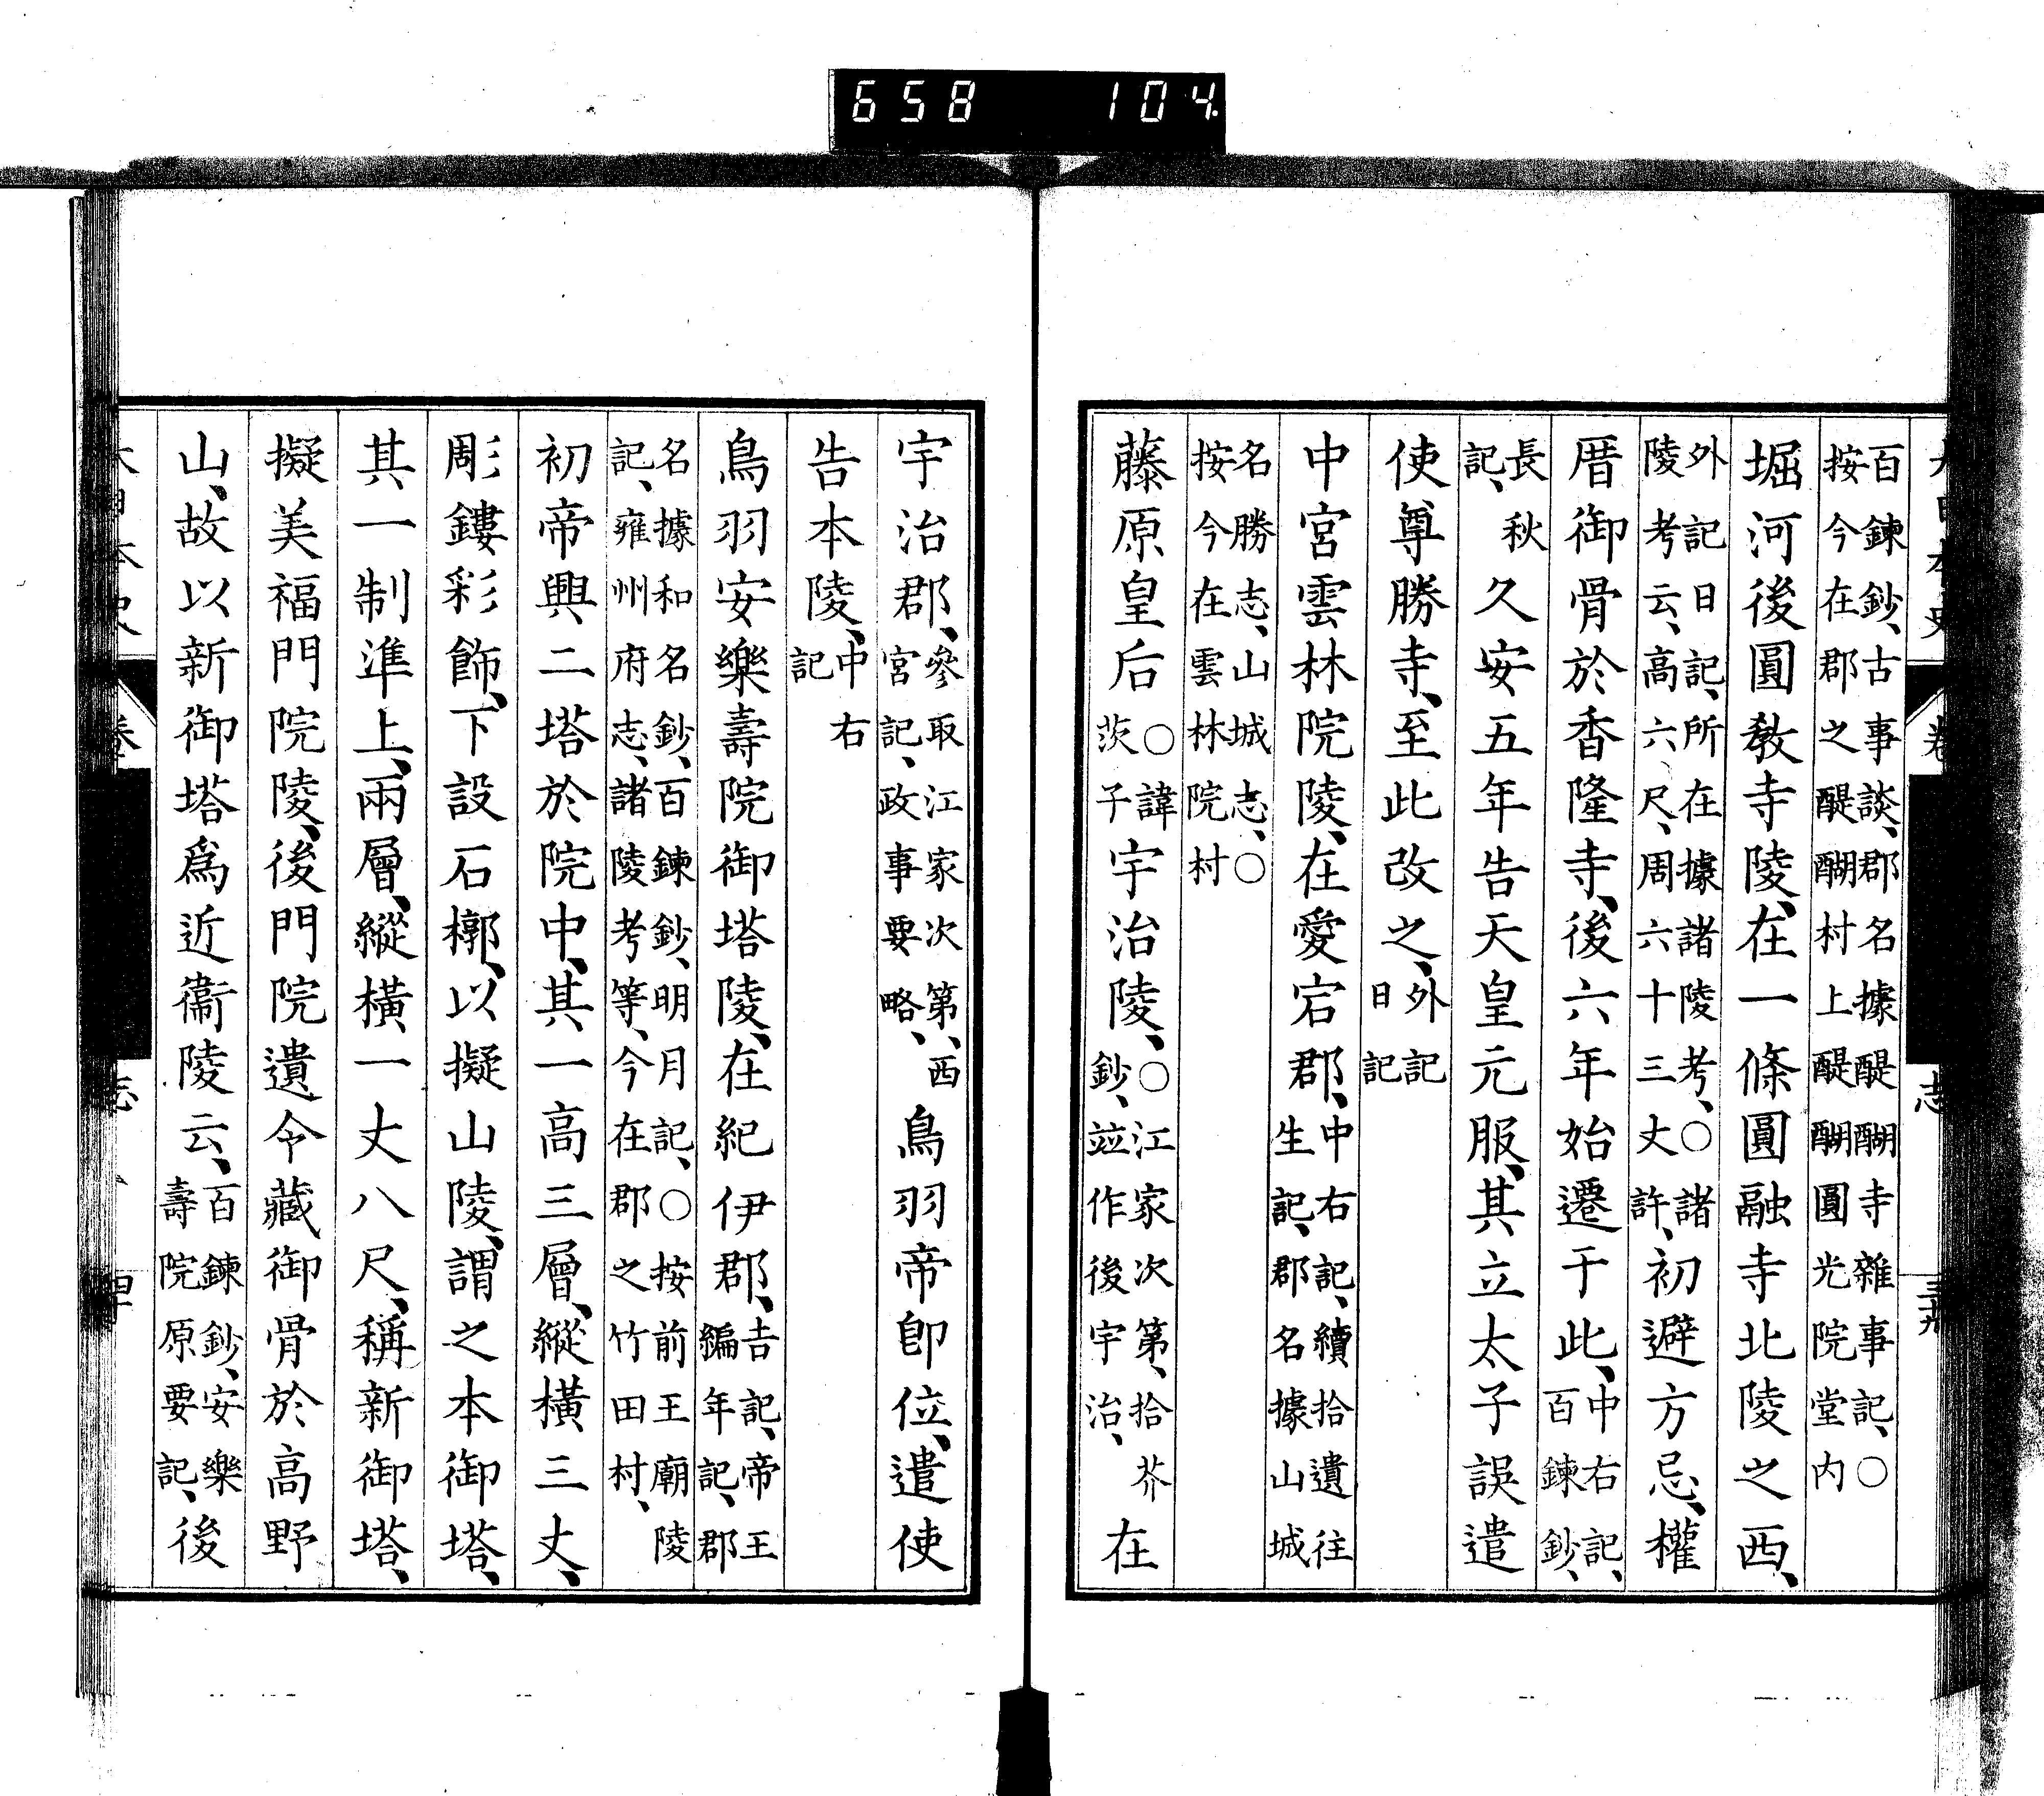 658 104
百鍊鈔、古事談、郡名據醍醐寺雜事記、〇
按今在郡之醍醐村上醍醐圓光院堂内
堀河後圓教寺陵、在一條圓融寺北陵之西、
外記日記、所在據諸陵考、〇諸
陵考云、高六尺、周六十三丈許、
初避方忌、權
厝御骨於香隆寺、後六年始遷于此、
中右記、
百鍊鈔、
長秋
記、
久安五年告天皇元服、其立太子誤遣
使尊勝寺、至此改之、
外記
日記
中宮雲林院陵、在愛宕郡、
中右記、續拾遺往
生記、郡名據山城
名勝志、山城志、〇
按今在雲林院村
藤原皇后
〇諱
茨子
宇治陵、
〇江家次第、拾芥
鈔、竝作後宇治、
在
宇治郡、
參取江家次第、西
宮記、政事要略、
鳥羽帝卽位、遣使
告本陵、
中右
記
鳥羽安樂壽院御塔陵、在紀伊郡、
吉記、帝王
編年記、郡
名據和名鈔、百鍊鈔、明月記、〇按前王廟陵
記、雍州府志、諸陵考等、今在郡之竹田村、
初帝興二塔於院中、其一高三層、縱橫三丈、
彫鏤彩飾、下設石槨、以擬山陵、謂之本御塔、
其一制準上、兩層、縱橫一丈八尺、稱新御塔、
擬美福門院陵、後門院遺令藏御骨於高野
山、故以新御塔爲近衞陵云、
百鍊鈔、安樂
壽院原要記、
後